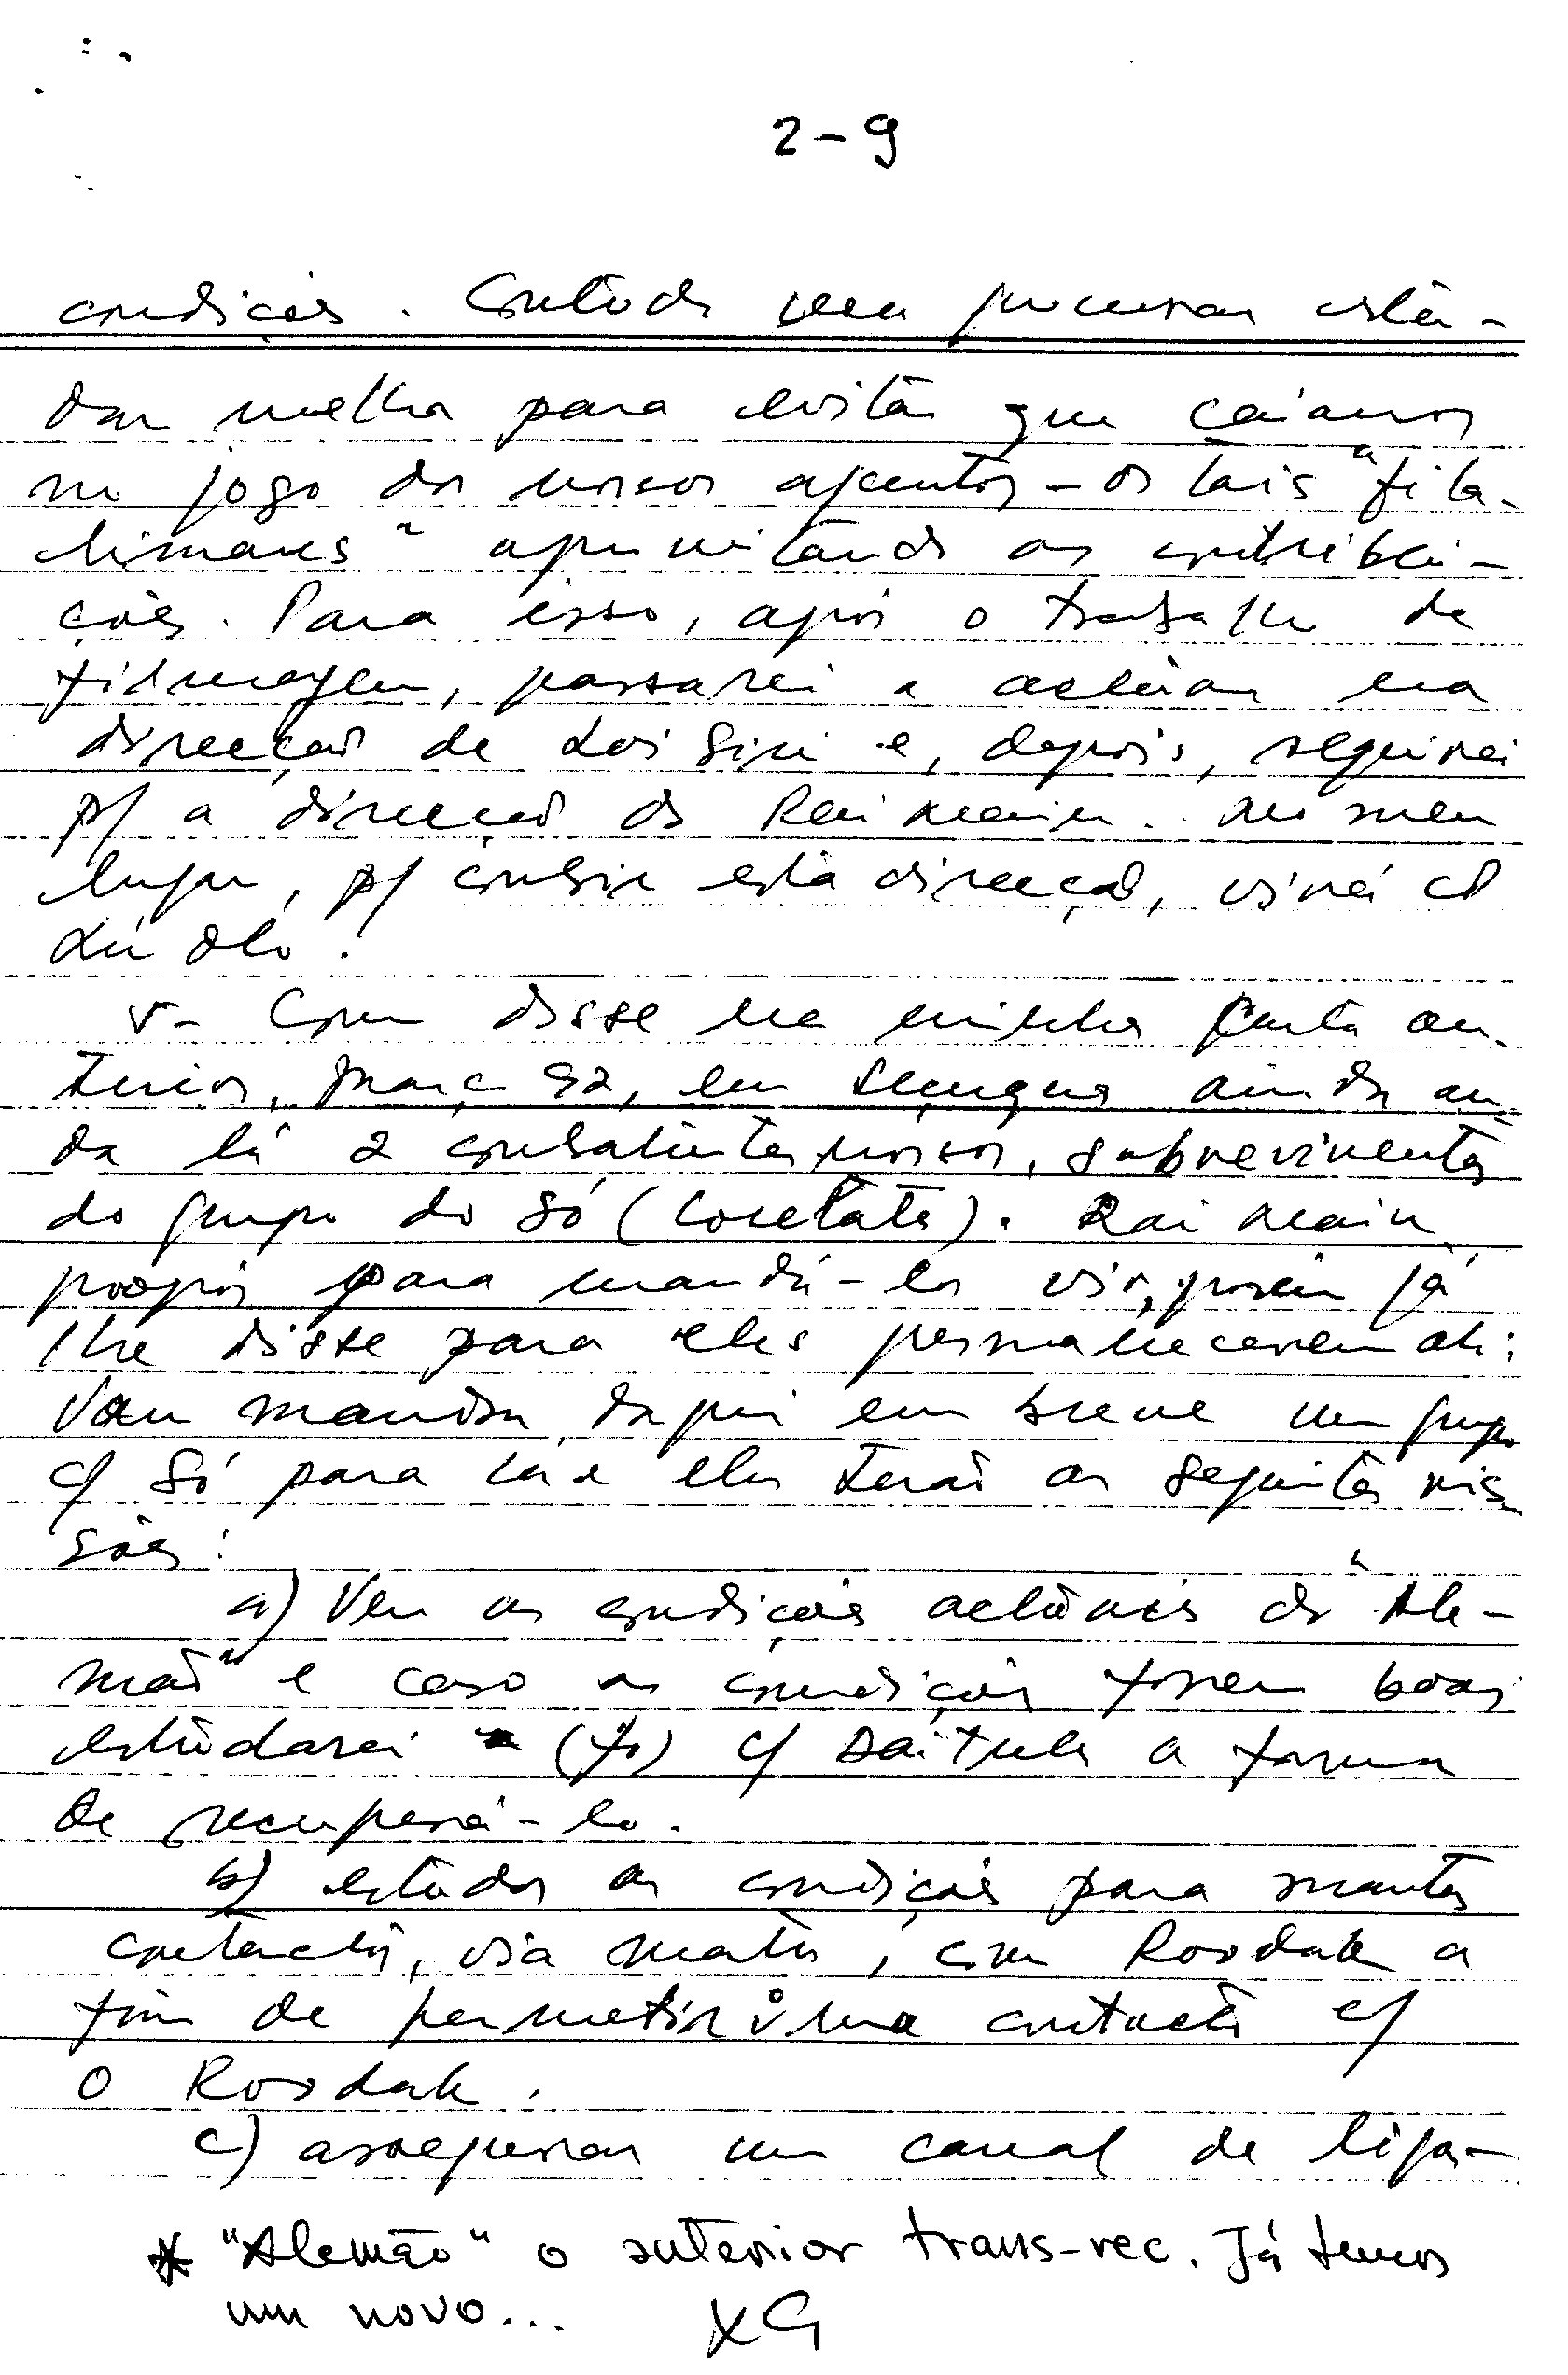 2-9
condições. Contudo vou procurar estu-
dar melhor para evitar que caiamos
no jogo dos nossos agentes - os tais "fila-
 " aproveitando as contribui-
ções. Para isso, após o trabalho de
filmagem, passarei a actuar na
direcção de Loi Siri e, depois, seguirei
p/ a direcção do Rai Reain. No meu
lugar, p/ cobrir esta direcção, virá cá
Lu Olo.
V- Como disse na minha carta an-
terior, Março 92, em ainda an-
da lá 2 combatentes nossos, sobreviventes
do grupo do Só (Coretata). Rai Reain
propôs para mandá-los vir, porém já
lhe disse para eles permanecerem ali:
Vou mandar daqui em breve um grupo
c/ Só para lá e eles terão as seguintes mis-
sões:
a) Ver as condições actuais do "Ale-
mão" e caso as condições forem boas
estudarei (fo) c/ Saitula a forma
de recuperá-lo.
b) estudar as condições para manter
contacto, via mato, com Roodak a
fim de permetir contacto c/
o Roodak.
c) assegurar um canal de liga-
* "Alemão" o anterior trans-rec. Já temos
um novo... XG